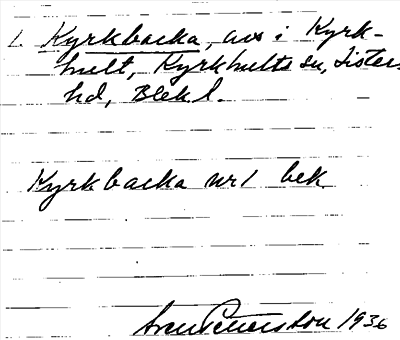 1. Kyrkbacka, avs i Kyrk-
hult, Kyrkhults sn, Listers
hd, Blek l.
Kyrkbacka nr1 bek
Sven Petersson 1936